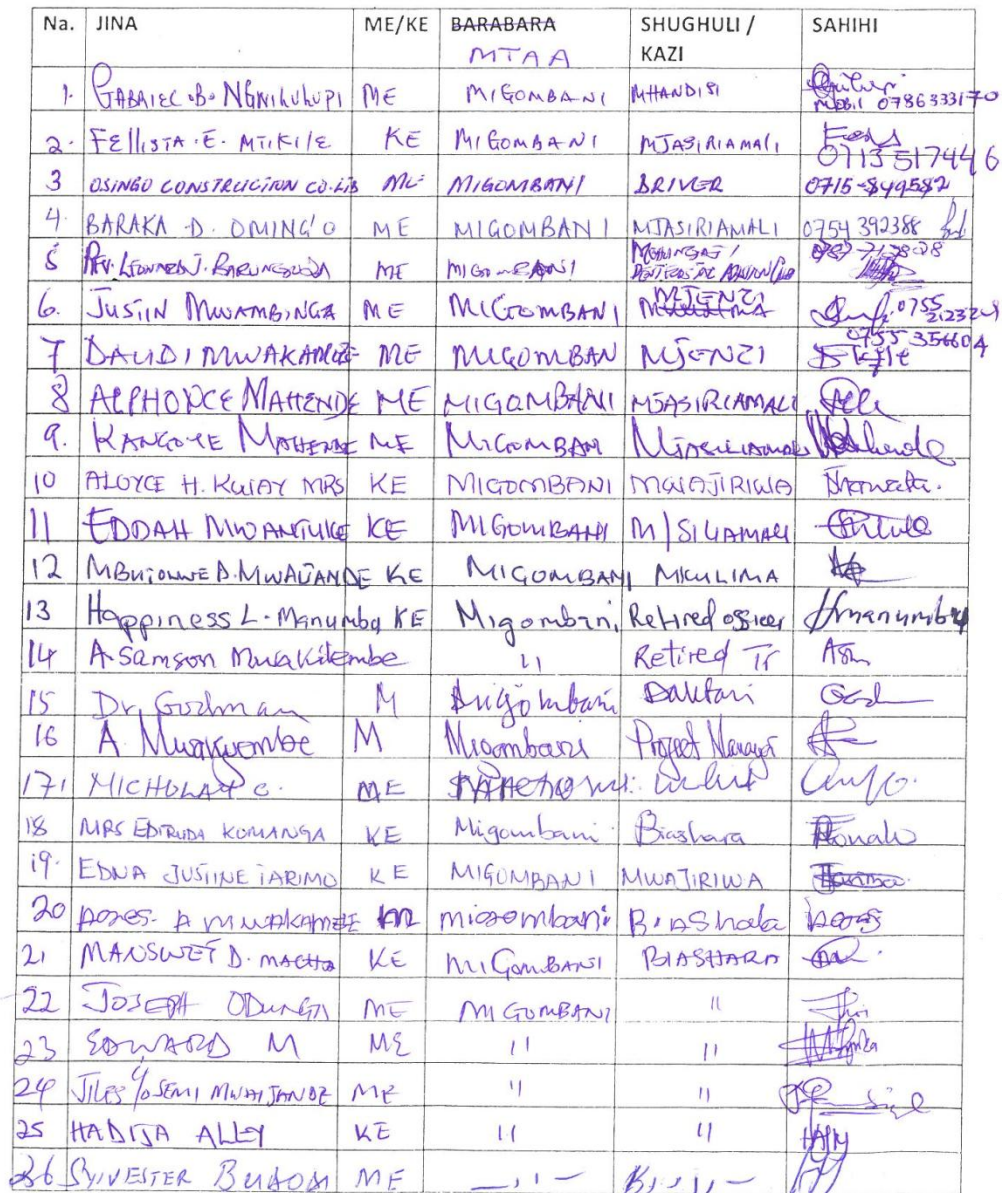 Na. JINA ME/KE BARABARA SHUGHULI / SAHIHI
MTAA KAZI
1. GABRIEL .B. NGWILULUPI ME MIGOMBANI MHANDISI
MOBIL 0786333170
2. FELLISTA .E. MTIKILE KE MIGOMBANI MJASIRIAMALI
0713 517446
3 OSINGO CONSTRUCTION CO.LTD ME MIGOMBANI DRIVER 0715-849582
4. BARAKA D. OMING'O ME MIGOMBANI MJASIRIAMALI 0754 392388
5 REV. J. ME MIGOMBANI MCHUNGAJI /
6. JUSTIN MWAMBINGA ME MIGOMBANI MJENZI 0755
7 DAUDI ME MIGOMBAN MJENZI 0755 356604
8 ALPHONCE MAHENDE ME MIGOMBANI MJASIRIAMALI
9. KANGOYE MAHENDE ME MIGOMBANI MJASILIAMALI
10 ALOYCE H. KWAY MRS KE MIGOMBANI MWAJIRIWA
11 EDDAH KE MIGOMBANI M/SILIAMALI
12 D. MWAIJANDE KE MIGOMBANI MKULIMA
13 Happiness L. Manumba KE Migombani Retired officer Hmanumba
14 A. Samson Mwakilembe 11 Retired Tr
15 Dr. Godman M Migombani Daktari
16 A Mwakyembe M Migombani Project Manager
17 MICHOLAY C. ME
18 MRS EDITRUDA KOMANGA KE Migombani Biashara
19. EDNA JUSTINE TARIMO KE MIGOMBANI MWAJIRIWA
20 A MWAKAMELE migombani BiAShala
21 MANSWET D. MACHA KE MIGOMBANI BIASHARA
22 JOSEPH ODUNGA ME MIGOMBANI 11
23 EDWARD M ME 11 11
24 JILES S/O SEMI MWAIJANDE ME 11 11
25 HADIJA ALLEY KE 11 11
26 SYLVESTER ME — 11 —